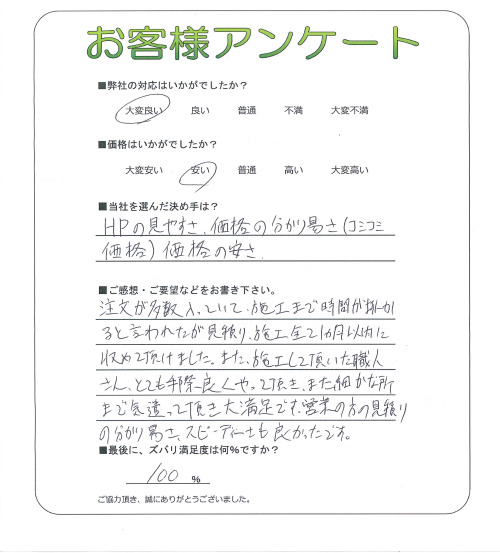 お客様アンケート
■弊社の対応はいかがでしたか？
大変良い 良い 普通 不満 大変不満
■価格はいかがでしたか？
大変安い 安い 普通 高い 大変高い
■当社を選んだ決め手は？
HPの見やすさ、価格の分かり易さ(コミコミ
価格)価格の安さ。
■ご感想・ご要望などをお書き下さい。
注文が多数入っていて、施工まで時間が掛か
ると言われたが見積り、施工全て1カ月以内に
収めて頂けました。また、施工して頂いた職人
さん、とても手際良くやって頂き、また細かな所
まで気遣って頂き大満足です。営業の方の見積り
の分かり易さ、スピーディーさも良かったです。
■最後に、ズバリ満足度は何%ですか？
100 %
ご協力頂き、誠にありがとうございました。